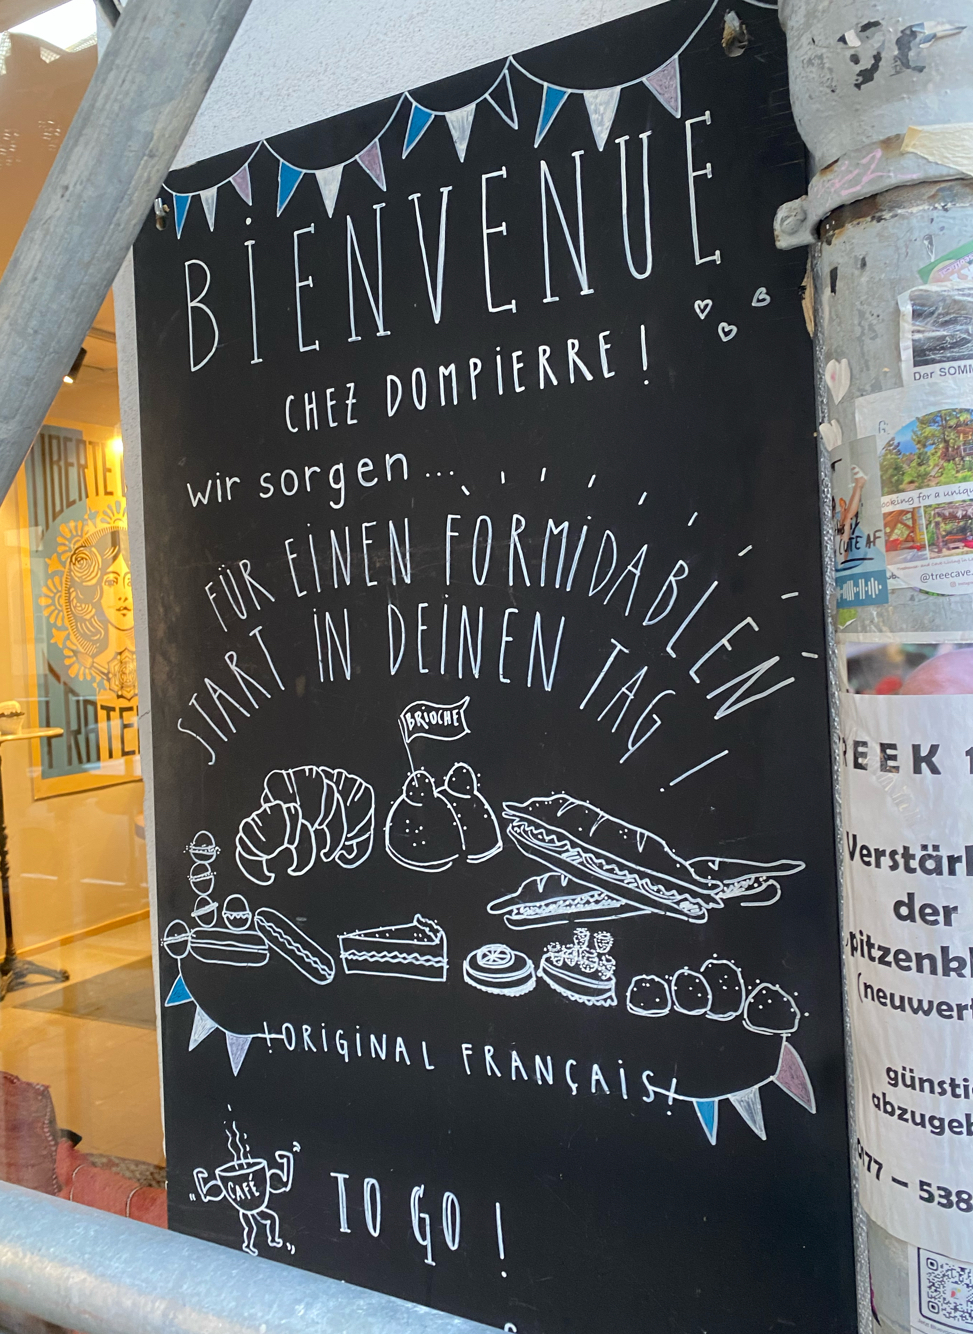 BIENVENUE
CHEZ DOMPIERRE!
wir sorgen...
FÜR EINEN FORMIDABLEN
START IN DEINEN TAG!
BRIOCHE
!ORIGINAL FRANÇAIS!
CAFÉ
TO GO!
Der SOMM
ooking for a uniqu
CUTE AF
@treecave.
REEK 1
Verstärk
der
pitzenkl
(neuwert
günsti
abzugeb
177 – 538